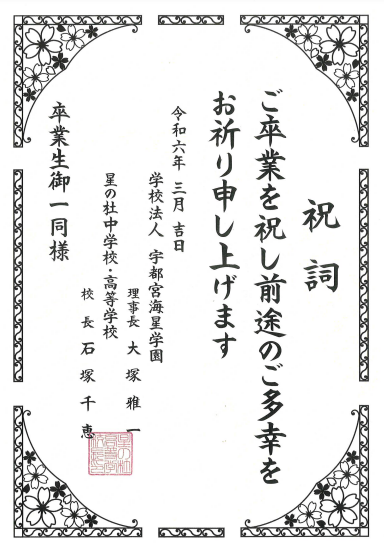 祝詞
ご卒業を祝し前途のご多幸を
お祈り申し上げます
令和六年 三月 吉日
学校法人 宇都宮海星学園
理事長 大塚雅一
星の杜中学校・高等学校
校長 石塚千恵
卒業生御一同様